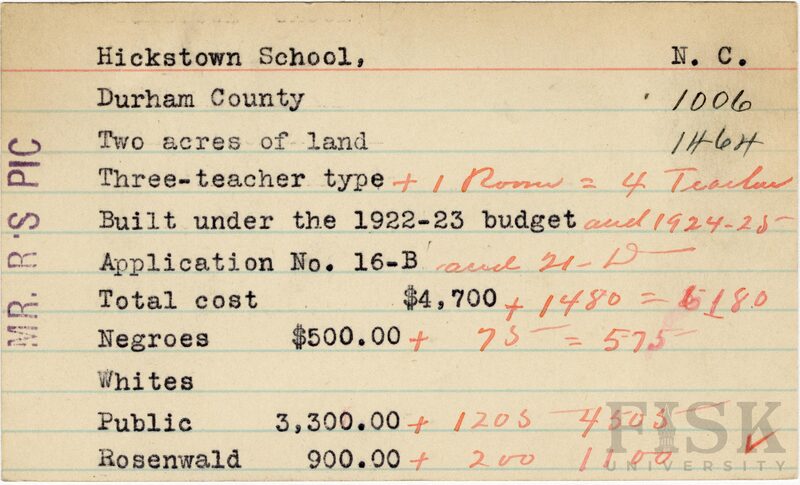 Hickstown School, N. C.
Durham County 1006
Two acres of land 1464
Three-teacher type + 1 Room = 4 Teacher
Built under the 1922-23 budget and 1924-25
Application No. 16-B and 21-D
Total cost $4,700 + 1480 = 6180
Negroes $500.00 + 75 = 575
Whites
Public 3,300.00 + 1205 4505
Rosenwald 900.00 + 200 1100 ✓
MR. R'S PIC
FISK
UNIVERSITY